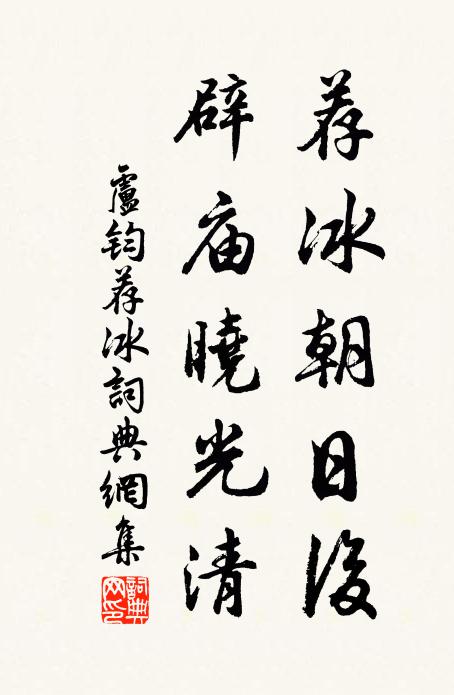 荐冰朝日後
辟庙曉光清
盧钧荐冰詞典網集
詞典网印